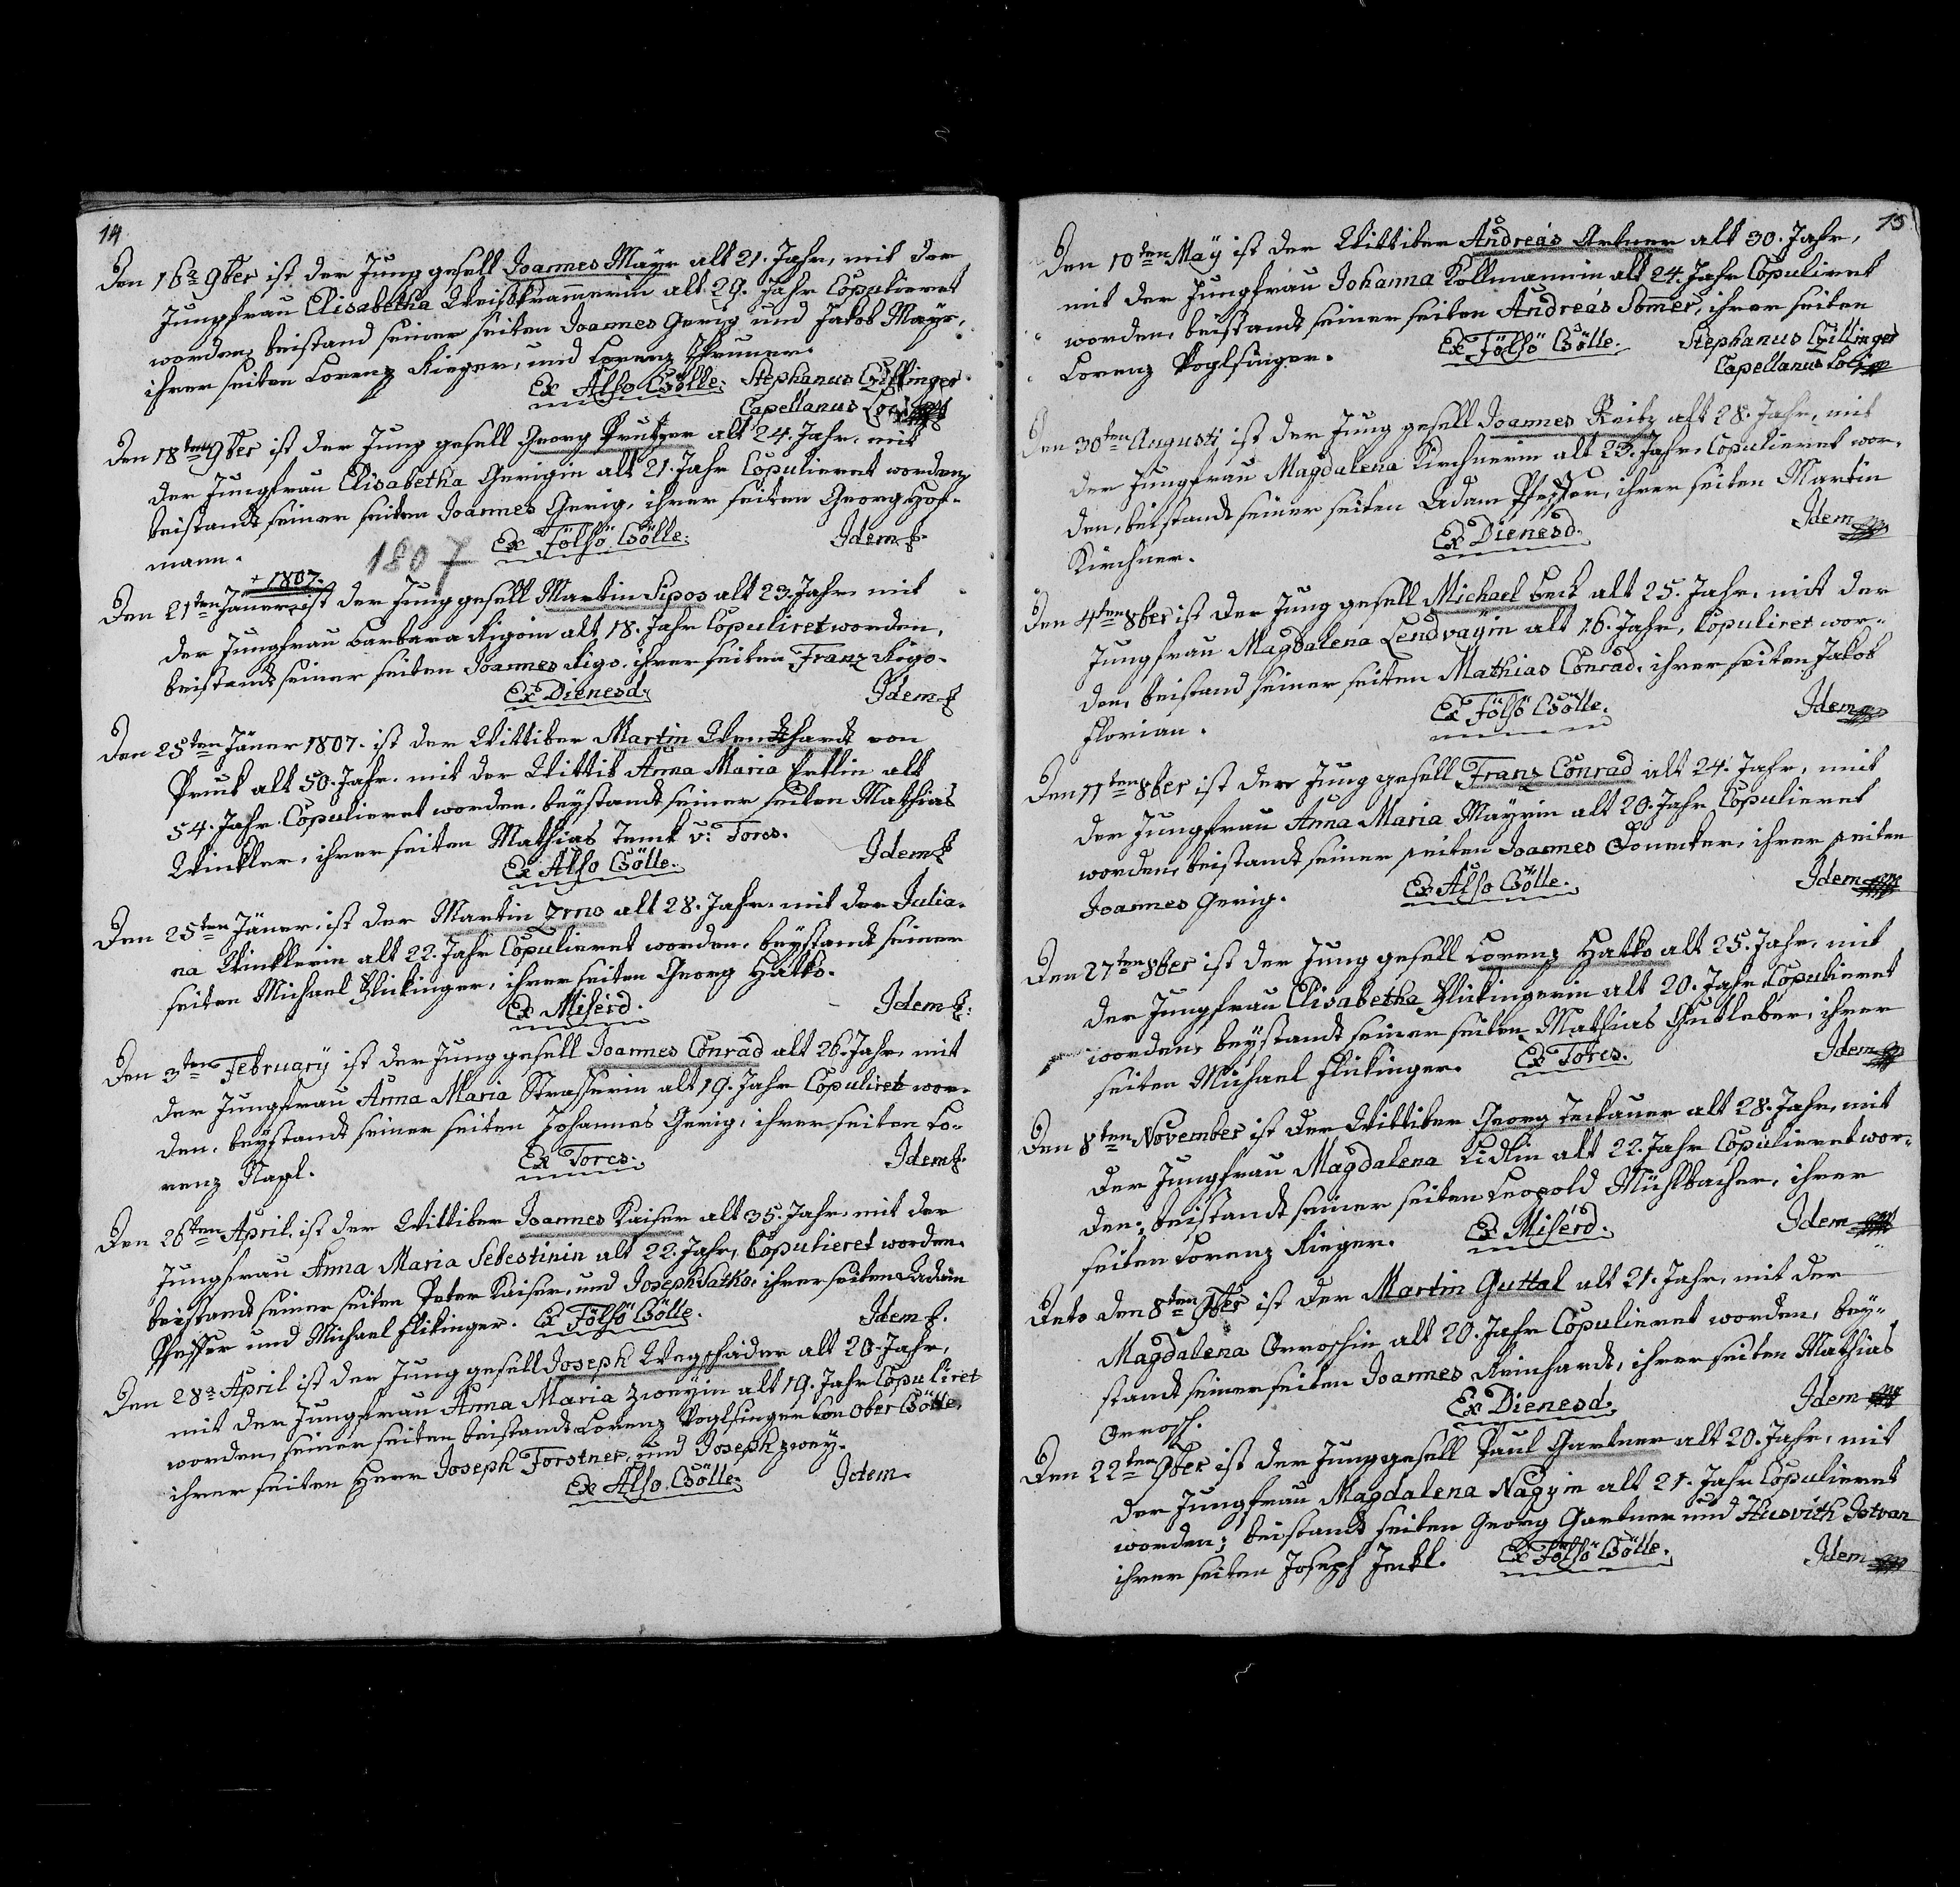 14
Den 16ª 9ber ist der Jung gesell Joannes Mayr alt 21. Jahr, mit der
Jungfrau Elisabetha Weisskrammerin alt 29. Jahr Copulieret
worden, beistand seiner seiten Joannes Gerig und Jakob Mayr,
ihrer seiten Lorenz Rieger, und Lorenz Pruner.
Ex Alsó Csölle. Stephanus Czillinger
Capellanus Loci
Den 18ten 9ber ist der Jung gesell Georg Prutzer alt 24. Jahr, mit
der Jungfrau Elisabetha Gerigin alt 21. Jahr Copulieret worden,
beistandt seiner seiten Joannes Gerig, ihrer seiten Georg Hof-
mann.
1807 Ex Fölsö Csölle. Idem
+ 1807.
Den 21ten Jäner ist der Jung gesell Martin Sipos alt 23. Jahr, mit
der Jungfrau Barbara Rigoin alt 18. Jahr Copuliret worden,
beistandt seiner seiten Joannes Rigo, ihrer seiten Franz Rigo.
Ex Dienesd. Idem
Den 25ten Jäner 1807. ist der Wittiber Martin Wenckhardt von
Pruck alt 50. Jahr. mit der Wittib Anna Maria Ertlin alt
54. Jahr Copulieret worden, beystandt seiner seiten Mathias
Winkler, ihrer seiten Mathias Temk v: Torcs.
Ex Alsó Csölle. Idem
Den 25ten Jäner, ist der Martin Zrno alt 28. Jahr, mit der Julia-
na Winklerin alt 22. Jahr Copulieret worden, beystandt seiner
seiten Michael Flikinger, ihrer seiten Georg Hatko.
Ex Misérd. Idem
Den 3ten February ist der Jung gesell Joannes Conrad alt 26. Jahr, mit
der Jungfrau Anna Maria Strasserin alt 19. Jahr Copuliret wor-
den, beystandt seiner seiten Johannes Gerig, ihrer seiten Lo-
renz Nagl. Ex Torcs. Idem
Den 26ten April, ist der Wittiber Joannes Kaiser alt 35. Jahr, mit der
Jungfrau Anna Maria Sebestinin alt 22. Jahr, Copulieret worden.
beistandt seiner seiten Peter Kaiser, und Joseph Satko, ihrer seiten Adam
Pfeffer und Michael Flikinger. Ex Fölsö Csölle. Idem
Den 28ª April ist der Jung gesell Joseph Wegschäder alt 20. Jahr,
mit der Jungfrau Anna Maria Zweyin alt 19. Jahr Copuliret
worden, seiner seiten beistandt Lorenz Voglsinger von Ober Csölle,
ihrer seiten Herr Joseph Forstner, und Joseph Zwey.
Ex Alsó Csölle. Idem
15
Den 10ten May ist der Wittiber Andreás Artner alt 30. Jahr,
mit der Jungfrau Johanna Kollmannin alt 24. Jahr Copuliret
worden, beistandt seiner seiten Andreás Somer, ihrer seiten
Lorenz Voglsinger. Ex Fölsö Csölle. Stephanus Czillinger
Capellanus Loci
Den 30ten Augusti ist der Jung gesell Joannes Reitz alt 28. Jahr, mit
der Jungfrau Magdalena Kirchnerin alt 23. Jahr, Copulieret wor-
den, beistandt seiner seiten Adam Pfeffer, ihrer seiten Martin
Kirchner. Ex Dienesd. Idem
Den 4ten 8ber ist der Jung gesell Michael Beck alt 25. Jahr, mit der
Jungfrau Magdalena Lendvayin alt 16. Jahr, Copuliret wor-
den, beistand seiner seiten Mathias Conrad, ihrer seiten Jakob
Florian. Ex Fölsö Csölle. Idem
Den 11ten 8ber ist der Jung gesell Franz Conrad alt 24. Jahr, mit
der Jungfrau Anna Maria Mayrin alt 20. Jahr Copulieret
worden, beistandt seiner seiten Joannes Donecker, ihrer seiten
Joannes Gerig. Ex Alsó Csölle. Idem
Den 27ten 8ber ist der Jung gesell Lorenz Hatko alt 25. Jahr, mit
der Jungfrau Elisabetha Flikingerin alt 20. Jahr Copulieret
worden, beystandt seiner seiten Mathias Gutleber, ihrer
seiten Michael Flikinger. Ex Torcs. Idem
Den 8ten November ist der Wittiber Georg Teckauer alt 28. Jahr, mit
der Jungfrau Magdalena Lidlin alt 22. Jahr Copulieret wor-
den, beistandt seiner seiten Leopold Mühlbacher, ihrer
seiten Lorenz Rieger. Ex Misérd. Idem
Dato den 8ten 9ber ist der Martin Guttal alt 21. Jahr, mit der
Magdalena Orroschin alt 20. Jahr Copulieret worden, bey-
standt seiner seiten Joannes Reinhardt, ihrer seiten Mathias
Orrosch. Ex Dienesd. Idem
Den 22ten 9ber ist der Jung gesell Paul Gartner alt 20. Jahr, mit
der Jungfrau Magdalena Nagyin alt 21. Jahr Copulieret
worden; beistandt seiten Georg Gartner und Husvith Istvan
ihrer seiten Joseph Inkl. Ex Fölsö Csölle. Idem